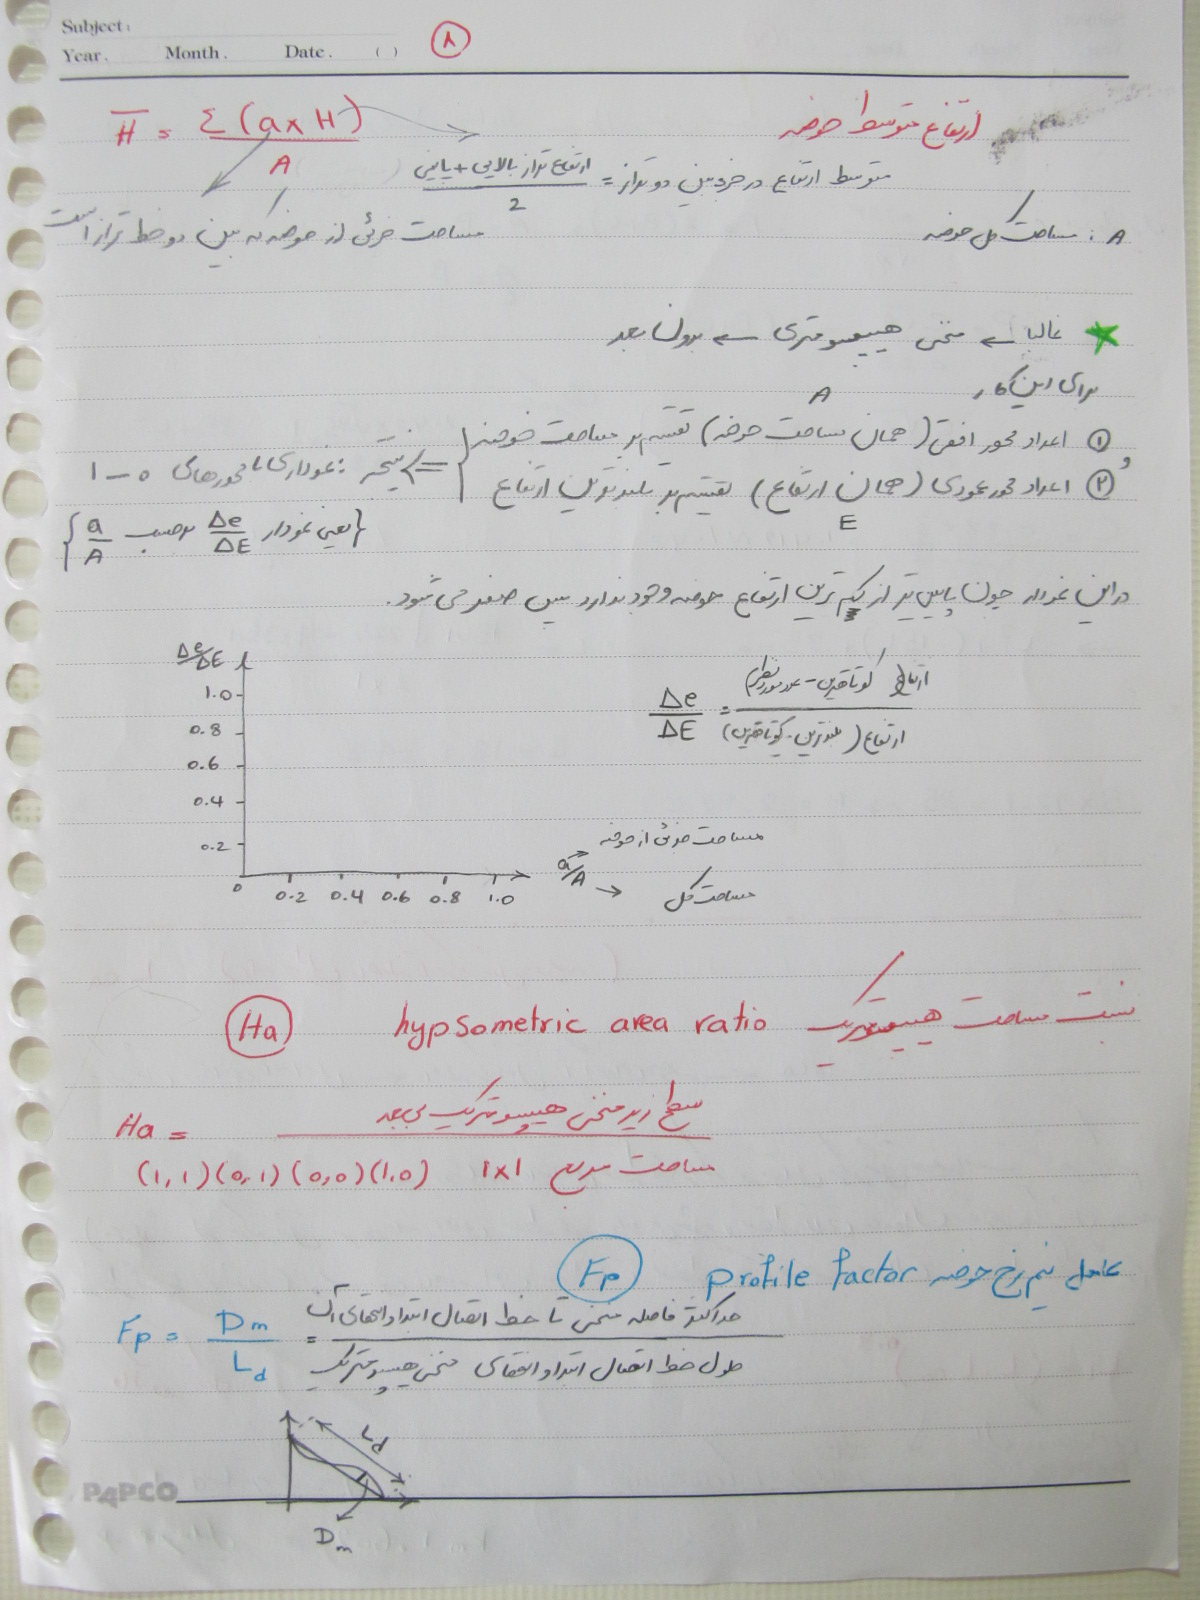 Subject:
Year. Month. Date. ( )
۸
ارتفاع متوسط حوضه
H̅ = Σ(a×H) / A
متوسط ارتفاع در جزء بین دو تراز = ارتفاع تراز بالایی + پایینی / 2
A : مساحت کل حوضه
مساحت جزئی از حوضه که بین دو خط تراز است
غالبا ← منحنی هیپسومتری ← بدون بعد
برای این کار
① اعداد محور افقی (همان مساحت حوضه) تقسیم بر مساحت حوضه A
و
② اعداد محور عمودی (همان ارتفاع) تقسیم بر بلندترین ارتفاع E
⇒ نتیجه: نموداری با محورهای 0-1
{یعنی نمودار Δe/ΔE برحسب a/A}
در این نمودار چون پایین تر از کم ترین ارتفاع حوضه وجود ندارد پس صفر می شود.
Δe/ΔE
1.0
0.8
0.6
0.4
0.2
0
0.2 0.4 0.6 0.8 1.0
Δe/ΔE = ارتفاع کوتاهترین - عدد مورد نظر / ارتفاع (بلندترین - کوتاهترین)
a/A → مساحت جزئی از حوضه
→ مساحت کل
نسبت مساحت هیپسومتریک hypsometric area ratio Ha
Ha = سطح زیر منحنی هیپسومتریک بی بعد / مساحت مربع 1×1 (1,1)(0,1)(0,0)(1,0)
عامل نیم رخ حوضه profile factor Fp
Fp = Dm / Ld = حداکثر فاصله منحنی تا خط اتصال ابتدا و انتهای آن / طول خط اتصال ابتدا و انتهای منحنی هیپسومتریک
Ld
Dm
PAPCO